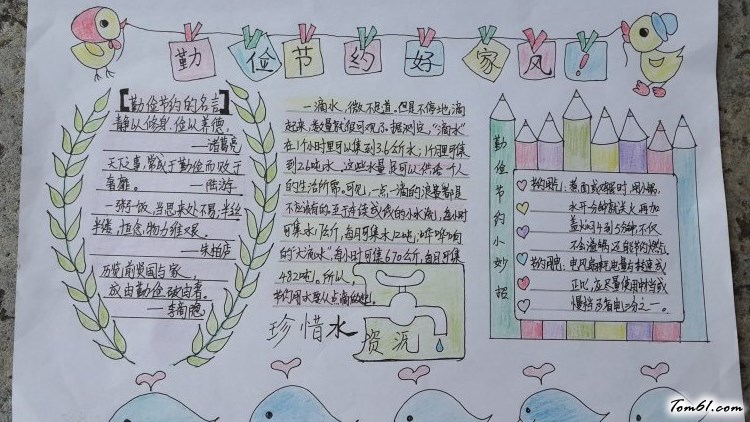 勤俭节约好家风!
【勤俭节约的名言】
静以修身,俭以养德,
——诸葛亮
天下事,常成于勤俭而败于
奢靡。——陆游
一粥一饭,当思来处不易;半丝
半缕,恒念物力维艰。
——朱柏庐
历览前贤国与家,
成由勤俭破由奢。
——李商隐
一滴水,微不足道。但是不停地滴
起来,数量就很可观了。据测定,“滴水”
在1个小时里可以集到3.6公斤水;1个月里可集
到2.6吨水,这些水量足可以供给一个人
的生活所需。可见,一点一滴的浪费都是
不应该有的。至于连续成线的小水流,每小时
可集水17公斤,每月可集水12吨,哗哗响
的“大流水”,每小时可集670公斤,每月可集
482吨。所以,
节约用水要从点滴做起。
珍惜水
资源
勤俭节约小妙招
节约燃料,煮面或鸡蛋时,用小锅,
水开5分钟就关火,再加
盖焖4到5分钟,不仅
不会溢锅,还能节约燃气。
节约用电,电风扇耗电量与转速成
正比,应尽量使用中档或
慢档,可省电三分之一。
Tom61.com